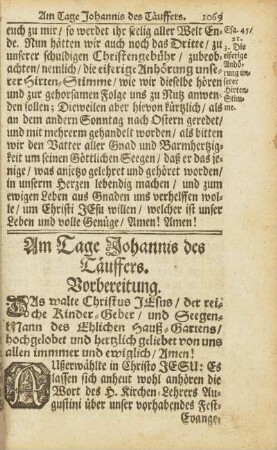 Am Tage Johannis des Täuffers. 1069
euch zu mir / so werdet ihr seelig aller Welt En-
de. Nun hätten wir auch noch das Dritte / zu
unserer schuldigen Christengebühr / zubeob-
achten / nemlich / die eiferige Anhörung uns-
rer Hirten-Stimme / wie wir dieselbe hören
und zur gehorsamen Folge uns zu Nutz anwen-
den sollen; Dieweilen aber hievon kürtzlich / als
an dem andern Sonntag nach Ostern geredet /
und mit mehrerm gehandelt worden / als bitten
wir den Vatter aller Gnad und Barmhertzig-
keit um seinen Göttlichen Seegen / daß er das je-
nige / was anjetzo gelehret und gehöret worden /
in unserm Herzen lebendig machen / und zum
ewigen Leben aus Gnaden uns verhelffen wol-
le / um Christi JEsu willen / welcher ist unser
Leben und volle Genüge / Amen! Amen!
Esa. 45 /
21.
3. Die
eiferige
Anhö-
rung un-
serer
Hirten-
Stim-
me.
Am Tage Johannis des
Täuffers.
Vorbereitung.
DAs walte Christus JEsus / der rei-
che Kinder-Geber / und Seegen-
Mann des Ehlichen Hauß-Gartens /
hochgelobet und hertzlich geliebet von uns
allen immmer und ewiglich / Amen!
AUßerwählte in Christo JESU: Es
lassen sich anheut wohl anhören die
Wort des H. Kirchen-Lehrers Au-
gustini über unser vorhabendes Fest-
Evange-